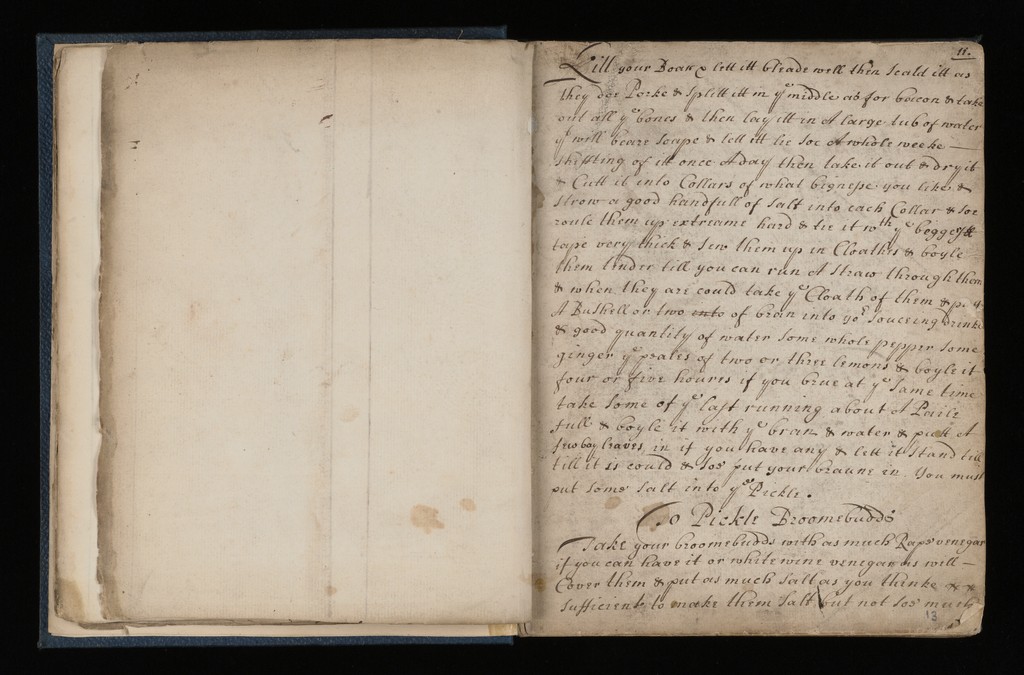 11.
Kill your Boar & lett itt bleade well then scald itt as
they doe Porke & splitt itt in yᵉ middle as for bacon & take
out all yᵉ bones & then lay itt in A large tub of water
yᵗ will beare scape & lett itt lie soe A whole weeke —
shiftting of itt once A day then take it out & dry it
& Cutt it into Collars of what bignesse you like &
strow a good handfull of salt into each Collar & soe
roule them up extreame hard & tie it wᵗʰ yᵉ biggest
tape very thick & sew them up in Cloathes & boyle
them tender till you can run A straw through them
& when they are could take yᵉ Cloath of them &
A Bushell or two into of bran into yoʳ souceing drinke
& good quantity of water some whole pepper some
ginger yᵉ peales of two or three lemons & boyle it
four or five houres if you brue at yᵉ same time
take some of yᵉ last running about A Paile
full & boyle it with yᵉ bran & water & putt A
few boy leaves in if you have any & lett it stand till
till it is could & soe put your braune in You must
put some salt into yᵉ Pickle.
To Pickle Broomebudds
Take your broomebudds with as much Rape venegar
if you can have it or white wine venegar as will —
Cover them & put as much salt as you thinke
sufficient to make them salt but not soe much
13